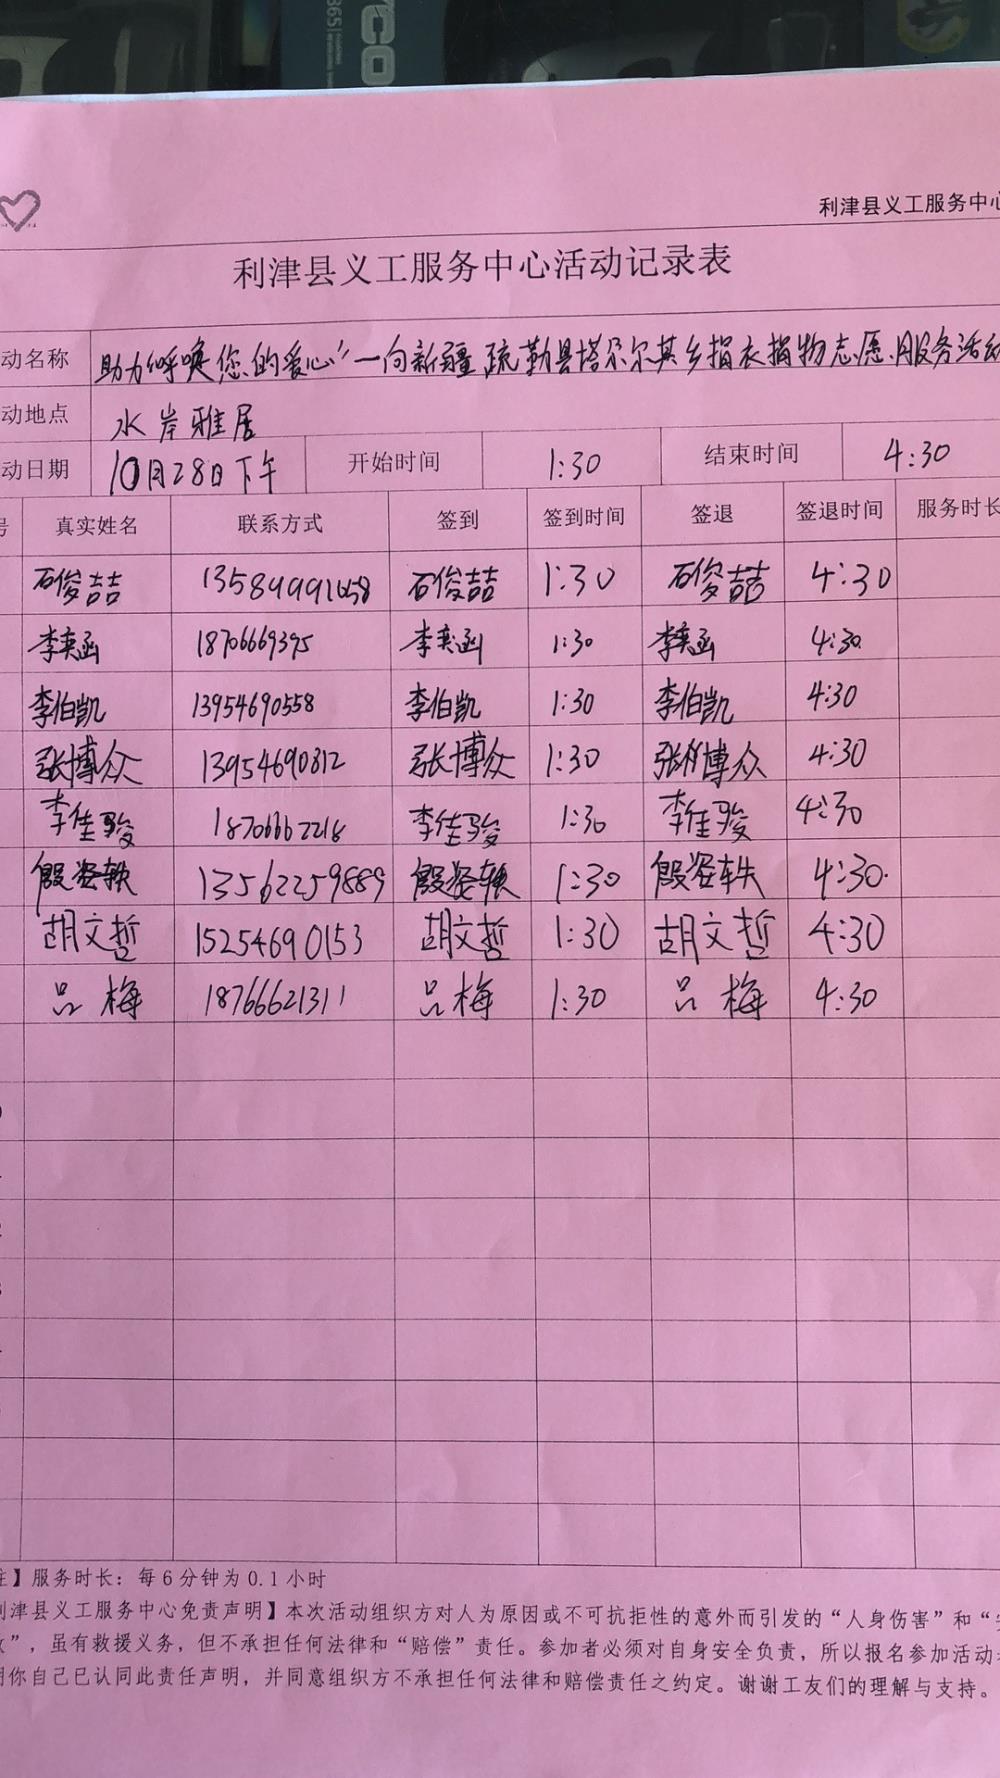 利津县义工服务中心
利津县义工服务中心活动记录表
动名称 助力“呼唤您的爱心”—向新疆疏勒县塔尕尔其乡捐衣捐物志愿服务活动
动地点 水岸雅居
动日期 10月28日下午 开始时间 1:30 结束时间 4:30
号 真实姓名 联系方式 签到 签到时间 签退 签退时间 服务时长
石俊喆 13589991658 石俊喆 1:30 石俊喆 4:30
李奕函 18706669395 李奕函 1:30 李奕函 4:30
李伯凯 13954690558 李伯凯 1:30 李伯凯 4:30
张博众 13954690812 张博众 1:30 张博众 4:30
李佳骏 18706662218 李佳骏 1:30 李佳骏 4:30
殷姿轶 13562259889 殷姿轶 1:30 殷姿轶 4:30
胡文哲 15254690153 胡文哲 1:30 胡文哲 4:30
吕梅 18766621311 吕梅 1:30 吕梅 4:30
注】服务时长：每6分钟为0.1小时
利津县义工服务中心免责声明】本次活动组织方对人为原因或不可抗拒性的意外而引发的“人身伤害”和“
”，虽有救援义务，但不承担任何法律和“赔偿”责任。参加者必须对自身安全负责，所以报名参加活动
明你自己已认同此责任声明，并同意组织方不承担任何法律和赔偿责任之约定。谢谢工友们的理解与支持。